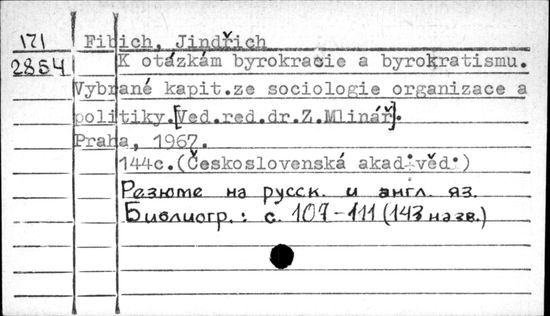 171 Fibich, Jindřich
2854 K otázkám byrokracie a byrokratismu.
Vybrané kapit.ze sociologie organizace a
politiky.[Ved.red.dr.Z.Mlinář].
Praha, 1967.
144с.(Československá akad.věd.)
Резюме на русск. и англ. яз.
Библиогр.: с. 107-111 (143 назв.)